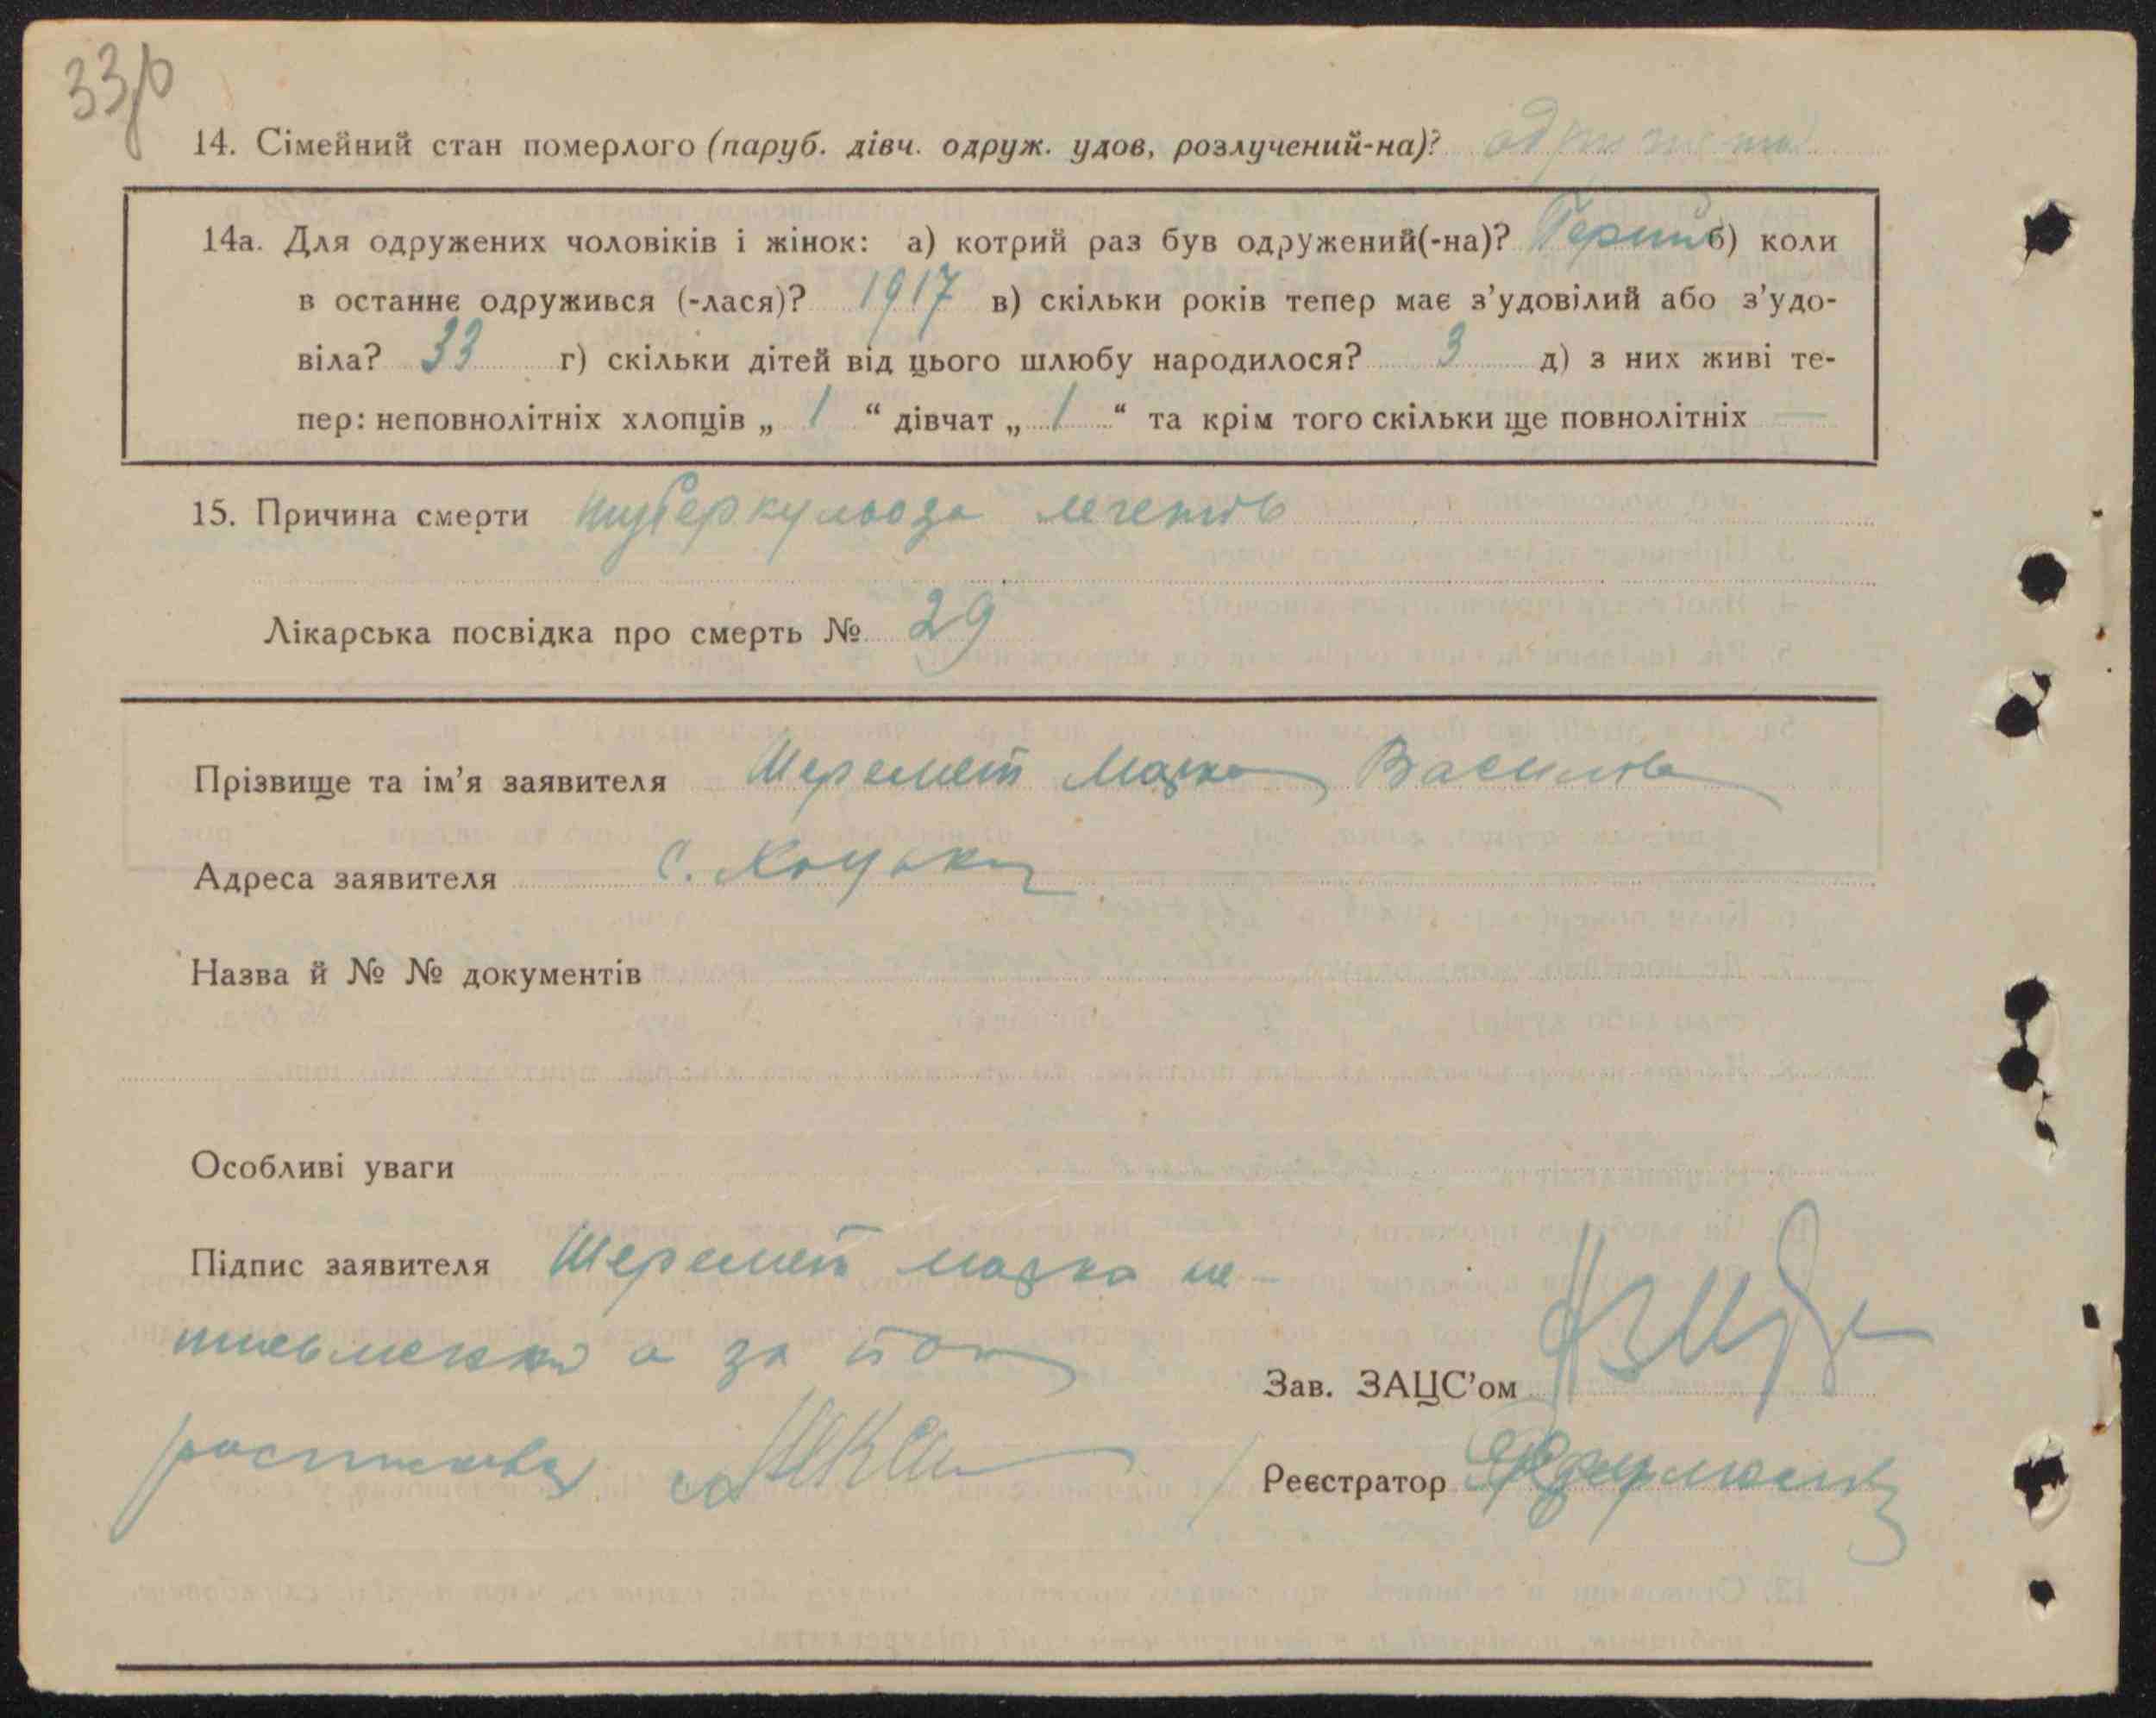 33
14. Сімейний стан померлого (паруб. дівч. одруж. удов, розлучений-на)?
14а. Для одружених чоловіків і жінок: а) котрий раз був одружений(-на)? Перший б) коли
в останнє одружився (-лася)? 1917 в) скільки років тепер має з’удовілий або з’удо-
віла? 33 г) скільки дітей від цього шлюбу народилося? 3 д) з них живі те-
пер: неповнолітніх хлопців „ 1 “ дівчат „ 1 “ та крім того скільки ще повнолітніх —
15. Причина смерти туберкульоза легенів
Лікарська посвідка про смерть № 29
Прізвище та ім’я заявителя Шеремет Марко Василів
Адреса заявителя с. Хоцьки
Назва й № № документів
Особливі уваги
Підпис заявителя Шеремет Марко не-
письменний а за
Зав. ЗАЦС’ом
Реєстратор